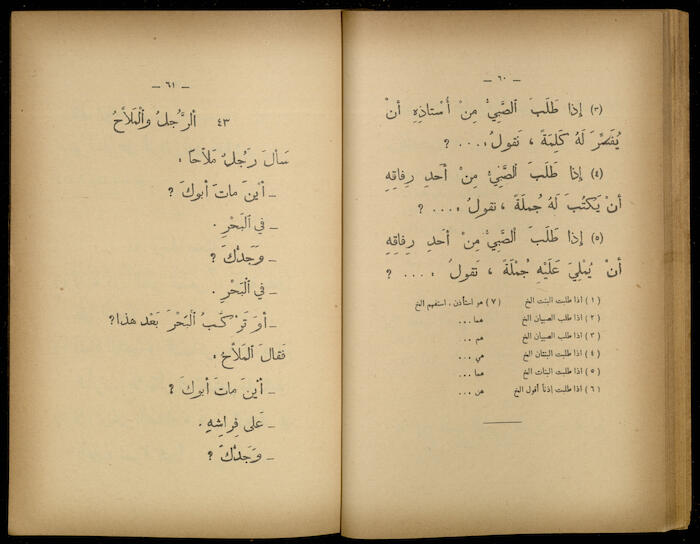 — ٦٠ —
(٣) إِذا طَلَبَ ٱلصَّبِيُّ مِنْ أُسْتاذِهِ أَنْ
يُفَسِّرَ لَهُ كَلِمَةً ، تَقولُ : ... ؟
(٤) إِذا طَلَبَ ٱلصَّبِيُّ مِنْ أَحَدِ رِفاقِهِ
أَنْ يَكْتُبَ لَهُ جُملَةً ، تَقولُ : ... ؟
(٥) إِذا طَلَبَ ٱلصَّبِيُّ مِنْ أَحَدِ رِفاقِهِ
أَنْ يُمْلِيَ عَلَيْهِ جُمْلَةً ، تَقولُ : ... ؟
(١) اذا طلبت البنت الخ (٧) هو استأذن ، استفهم الخ
(٢) اذا طلب الصبيان الخ هما ...
(٣) اذا طلب الصبيان الخ هم ...
(٤) اذا طلبت البنتان الخ هي ...
(٥) اذا طلبت البنات الخ هما ...
(٦) اذا طلبت إذناً أقول الخ هن ...
— ٦١ —
٤٣ ٱلرَّجُلُ وَٱلْمَلاَّحُ
سَأَلَ رَجُلٌ مَلاَّحاً :
ـ أَيْنَ ماتَ أَبوكَ ؟
ـ في ٱلْبَحْرِ .
ـ وَجَدُّكَ ؟
ـ في ٱلْبَحْرِ .
ـ أَوَ تَرْكَبُ ٱلْبَحْرَ بَعْدَ هذا؟
فَقالَ ٱلْمَلاَّحُ :
ـ أَيْنَ ماتَ أَبوكَ ؟
ـ عَلى فِراشِهِ .
ـ وَجَدُّكَ ؟